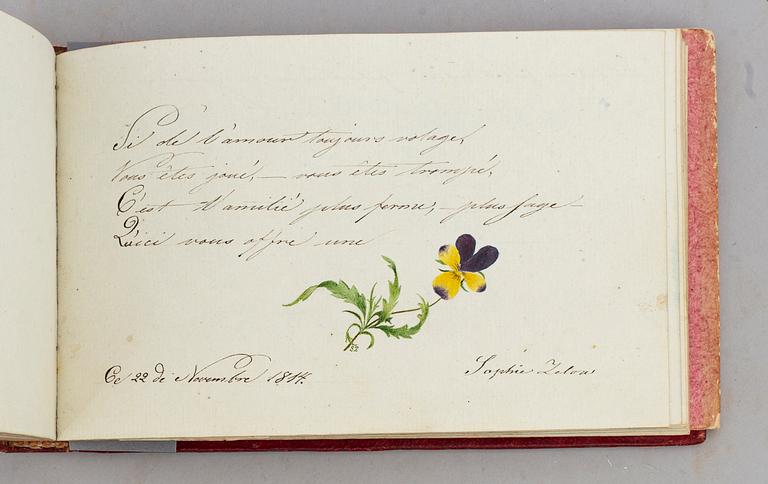 Si de l'amour toujours volage,
Vous êtes joué, — vous êtes trompé,
C'est l'amitié plus ferme, — plus sage —
Qu'ici vous offre une
SZ
Ce 22 de Novembre 1817.
Sophie